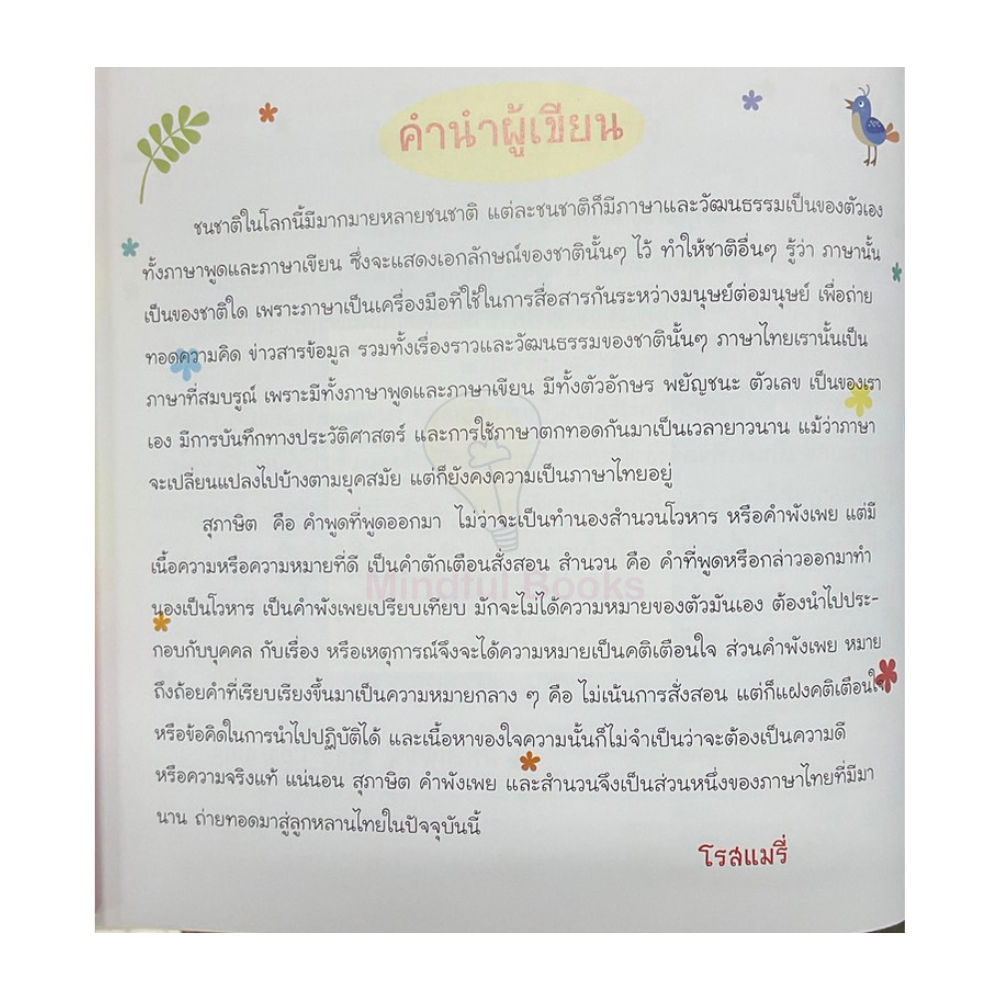 คำนำผู้เขียน
ชนชาติในโลกนี้มีมากมายหลายชนชาติ แต่ละชนชาติก็มีภาษาและวัฒนธรรมเป็นของตัวเอง
ทั้งภาษาพูดและภาษาเขียน ซึ่งจะแสดงเอกลักษณ์ของชาตินั้นๆ ไว้ ทำให้ชาติอื่นๆ รู้ว่า ภาษานั้น
เป็นของชาติใด เพราะภาษาเป็นเครื่องมือที่ใช้ในการสื่อสารกันระหว่างมนุษย์ต่อมนุษย์ เพื่อถ่าย
ทอดความคิด ข่าวสารข้อมูล รวมทั้งเรื่องราวและวัฒนธรรมของชาตินั้นๆ ภาษาไทยเรานั้นเป็น
ภาษาที่สมบรูณ์ เพราะมีทั้งภาษาพูดและภาษาเขียน มีทั้งตัวอักษร พยัญชนะ ตัวเลข เป็นของเรา
เอง มีการบันทึกทางประวัติศาสตร์ และการใช้ภาษาตกทอดกันมาเป็นเวลายาวนาน แม้ว่าภาษา
จะเปลี่ยนแปลงไปบ้างตามยุคสมัย แต่ก็ยังคงความเป็นภาษาไทยอยู่
สุภาษิต คือ คำพูดที่พูดออกมา ไม่ว่าจะเป็นทำนองสำนวนโวหาร หรือคำพังเพย แต่มี
เนื้อความหรือความหมายที่ดี เป็นคำตักเตือนสั่งสอน สำนวน คือ คำที่พูดหรือกล่าวออกมาทำ
นองเป็นโวหาร เป็นคำพังเพยเปรียบเทียบ มักจะไม่ได้ความหมายของตัวมันเอง ต้องนำไปประ-
กอบกับบุคคล กับเรื่อง หรือเหตุการณ์จึงจะได้ความหมายเป็นคติเตือนใจ ส่วนคำพังเพย หมาย
ถึงถ้อยคำที่เรียบเรียงขึ้นมาเป็นความหมายกลาง ๆ คือ ไม่เน้นการสั่งสอน แต่ก็แฝงคติเตือนใจ
หรือข้อคิดในการนำไปปฏิบัติได้ และเนื้อหาของใจความนั้นก็ไม่จำเป็นว่าจะต้องเป็นความดี
หรือความจริงแท้ แน่นอน สุภาษิต คำพังเพย และสำนวนจึงเป็นส่วนหนึ่งของภาษาไทยที่มีมา
นาน ถ่ายทอดมาสู่ลูกหลานไทยในปัจจุบันนี้
โรสแมรี่
Mindful Books